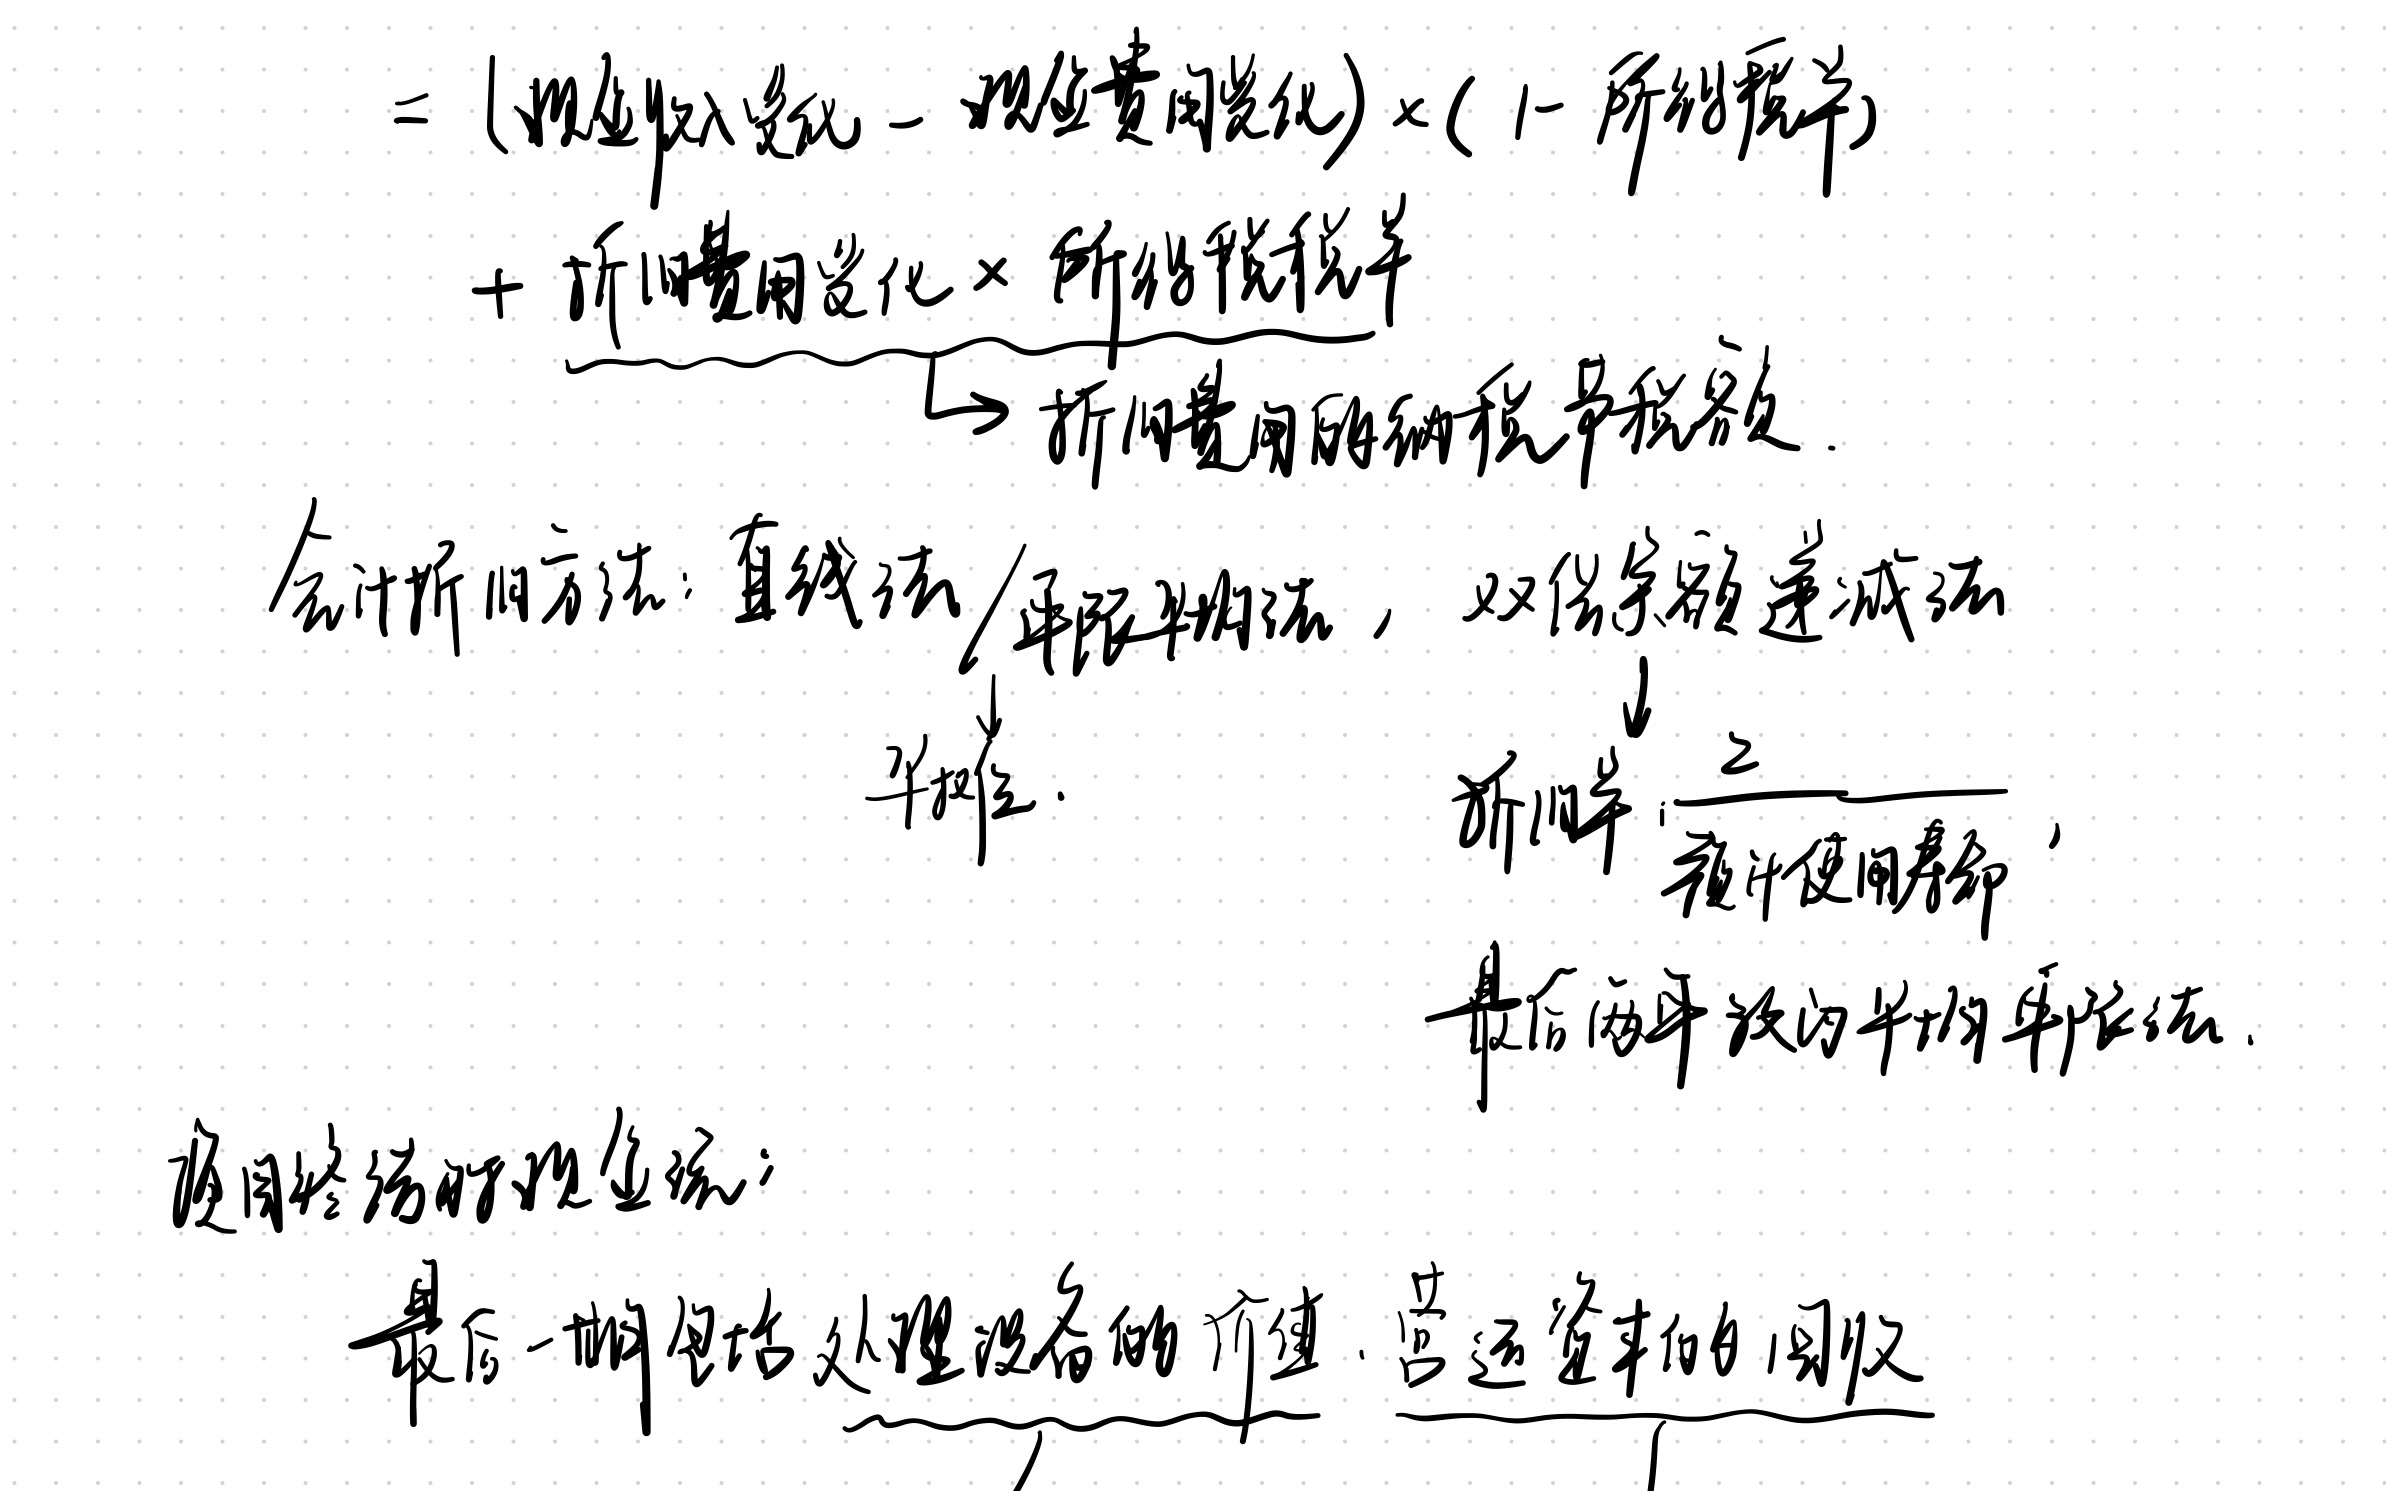 =(现金收入变化 - 现金费用变化)×(1-所得税率)
+ 折旧费用变化 × 所得税税率
折旧费用的纳税节税额.
会计折旧方法: 直线法/年限平均法, 双倍余额递减法
平均
折旧率: 2
预计使用寿命,
最后两年改为年均年限法.
项目终结的现金流:
最后一期包括处理设备的价值.营运资本的回收